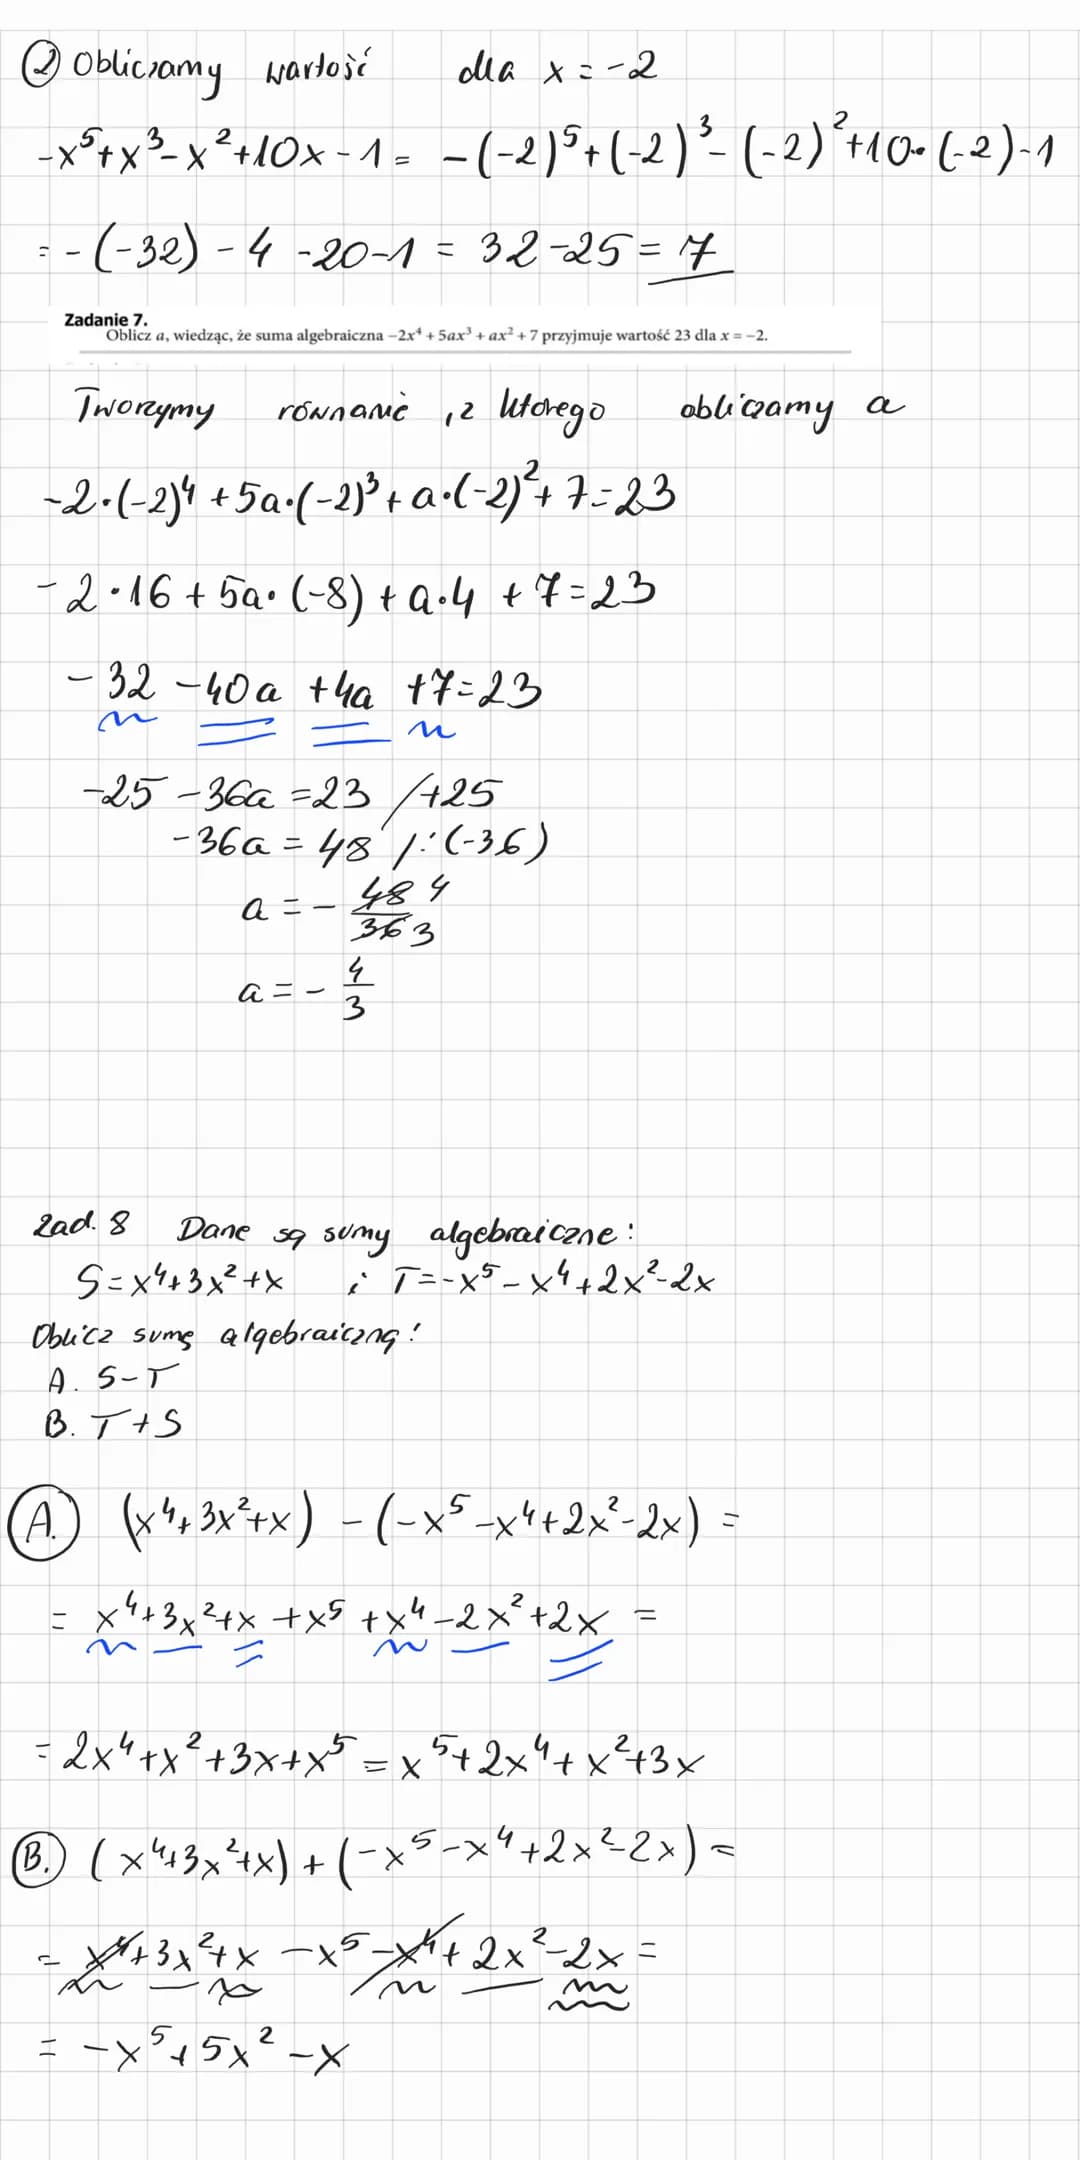 ② Obliczamy wartość dla x = -2
-x⁵+x³-x²+10x-1 = -(-2)⁵+(-2)³-(-2)²+10•(-2)-1
= -(-32) - 4 -20-1 = 32-25 = 7
Zadanie 7.
Oblicz a, wiedząc, że suma algebraiczna −2x⁴ + 5ax³ + ax² + 7 przyjmuje wartość 23 dla x = −2.
Tworzymy równanie, z którego obliczamy a
-2•(-2)⁴ + 5a•(-2)³ + a•(-2)² + 7 = 23
-2•16 + 5a•(-8) + a•4 + 7 = 23
-32 -40a +4a +7 = 23
-25 -36a = 23 /+25
-36a = 48 /:(-36)
a = - 48/36 4/3
a = - 4/3
Zad. 8 Dane są sumy algebraiczne:
S = x⁴+3x²+x i T = -x⁵-x⁴+2x²-2x
Oblicz sumę algebraiczną:
A. S-T
B. T+S
A. (x⁴+3x²+x) - (-x⁵-x⁴+2x²-2x) =
= x⁴+3x²+x +x⁵ +x⁴-2x²+2x =
= 2x⁴+x²+3x+x⁵ = x⁵+2x⁴+x²+3x
B. (x⁴+3x²+x) + (-x⁵-x⁴+2x²-2x) =
= x⁴+3x²+x -x⁵-x⁴+2x²-2x =
= -x⁵+5x²-x